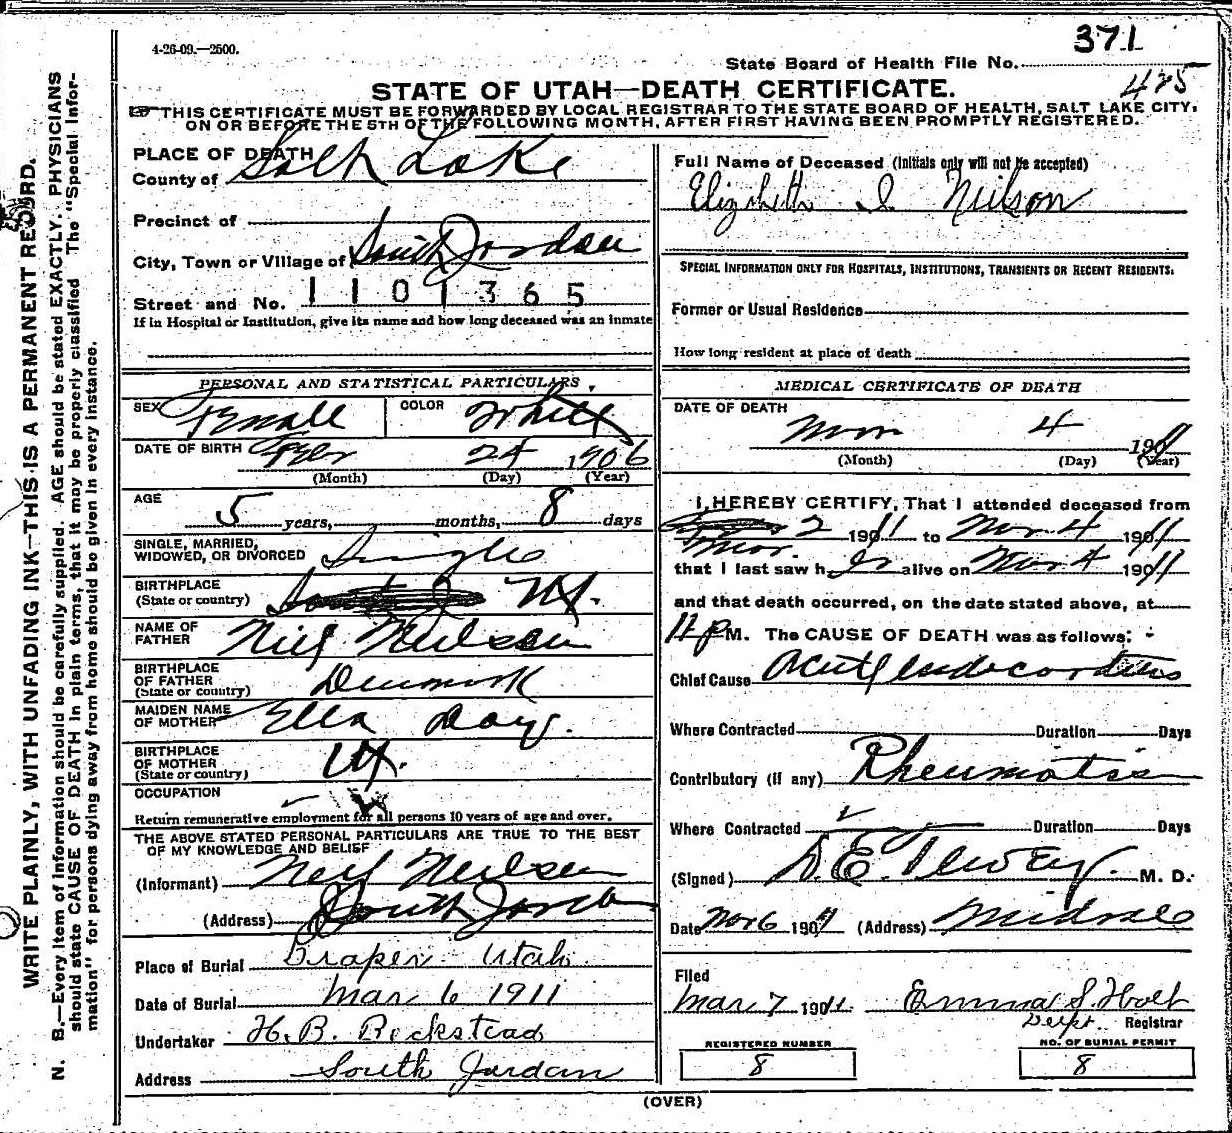 371
4-26-09.—2500.
State Board of Health File No.
475
STATE OF UTAH—DEATH CERTIFICATE.
THIS CERTIFICATE MUST BE FORWARDED BY LOCAL REGISTRAR TO THE STATE BOARD OF HEALTH, SALT LAKE CITY,
ON OR BEFORE THE 5TH OF THE FOLLOWING MONTH, AFTER FIRST HAVING BEEN PROMPTLY REGISTERED.
WRITE PLAINLY, WITH UNFADING INK—THIS IS A PERMANENT RECORD.
N. B.—Every item of information should be carefully supplied. AGE should be stated EXACTLY. PHYSICIANS
should state CAUSE OF DEATH in plain terms, that it may be properly classified. The "Special Infor-
mation" for persons dying away from home should be given in every instance.
PLACE OF DEATH
County of Salt Lake
Precinct of
City, Town or Village of South Jordan
Street and No. 1101365
If in Hospital or Institution, give its name and how long deceased was an inmate
PERSONAL AND STATISTICAL PARTICULARS.
SEX Female COLOR White
DATE OF BIRTH 24 1906
(Month) (Day) (Year)
AGE
5 years, months, 8 days
SINGLE, MARRIED,
WIDOWED, OR DIVORCED Single
BIRTHPLACE
(State or country) Ut.
NAME OF
FATHER Niels Neilsen
BIRTHPLACE
OF FATHER
(State or country) Denmark
MAIDEN NAME
OF MOTHER Ella Day.
BIRTHPLACE
OF MOTHER
(State or country) Ut.
OCCUPATION
Return remunerative employment for all persons 10 years of age and over.
THE ABOVE STATED PERSONAL PARTICULARS ARE TRUE TO THE BEST
OF MY KNOWLEDGE AND BELIEF
(Informant) Neils Neilsen
(Address) South Jordan
Place of Burial Draper Utah
Date of Burial Mar 6 1911
Undertaker H. B. Beckstead
Address South Jordan
Full Name of Deceased (Initials only will not be accepted)
Elizabeth I. Neilson
SPECIAL INFORMATION ONLY FOR HOSPITALS, INSTITUTIONS, TRANSIENTS OR RECENT RESIDENTS.
Former or Usual Residence
How long resident at place of death
MEDICAL CERTIFICATE OF DEATH
DATE OF DEATH
Mar 4 1911
(Month) (Day) (Year)
I HEREBY CERTIFY, That I attended deceased from
Mar. 2 1911 to Mar 4 1911
that I last saw her alive on Mar 4 1911
and that death occurred, on the date stated above, at
PM. The CAUSE OF DEATH was as follows:
Chief Cause Acute Endocarditis
Where Contracted Duration Days
Contributory (if any) Rheumatism
Where Contracted Duration Days
(Signed) M. D.
Date Mar 6 1911 (Address) Midvale
Filed
Mar 7 1911 Emma S. Holt
Dept. Registrar
REGISTERED NUMBER
8
NO. OF BURIAL PERMIT
8
(OVER)